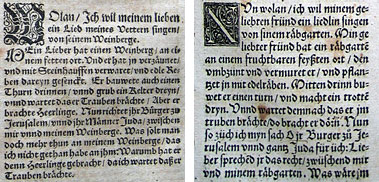 WOlan / Ich wil meinem lieben
ein Lied meines Vettern singen
von seinem Weinberge.
MEin Lieber hat einen Weinberg / an ei
nem fetten ort. Vnd er hat jn verzäunet /
vnd mit Steinhauffen verwaret / vnd edle Re
ben darein gesenckt. Er bawete auch einen
Thurn drinnen / vnd grub ein Kelter drein /
vnd wartet das er Trauben brächte / Aber er
brachte Heerlinge. Nu richtet jr Bürger zu
Jerusalem / vnd jr Menner Juda / zwischen
mir vnd meinem Weinberge. Was solt man
doch mehr thun an meinem Weinberge / das
ich nicht gethan habe an jhm: Warumb hat er
denn Heerlinge gebracht / da ich wartet das er
Trauben brächte.
NVn wolan / ich wil minem ge
liebten fründ ein liedlin singen
von sinem räbgarten. Min ge
liebter fründ hat ein räbgarten
an einem fruchtbaren feyßten ort / den
vmbzünt vnd vermuret er / vnd pflan
zet jn mit edelräben. Mitten drinn buw
wet er einen turn / vnd machet ein trotten
dryn. Vnd wartet demnach das er jm
truben brächte / do bracht er dörn. Nun
so züch ich myn sach O jr Burger zu Je
rusalem vnnd gantz Juda für üch: Lie
ber sprechend jr das recht / zwüschend mir
vnd minem räbgarten. Was wäre jm